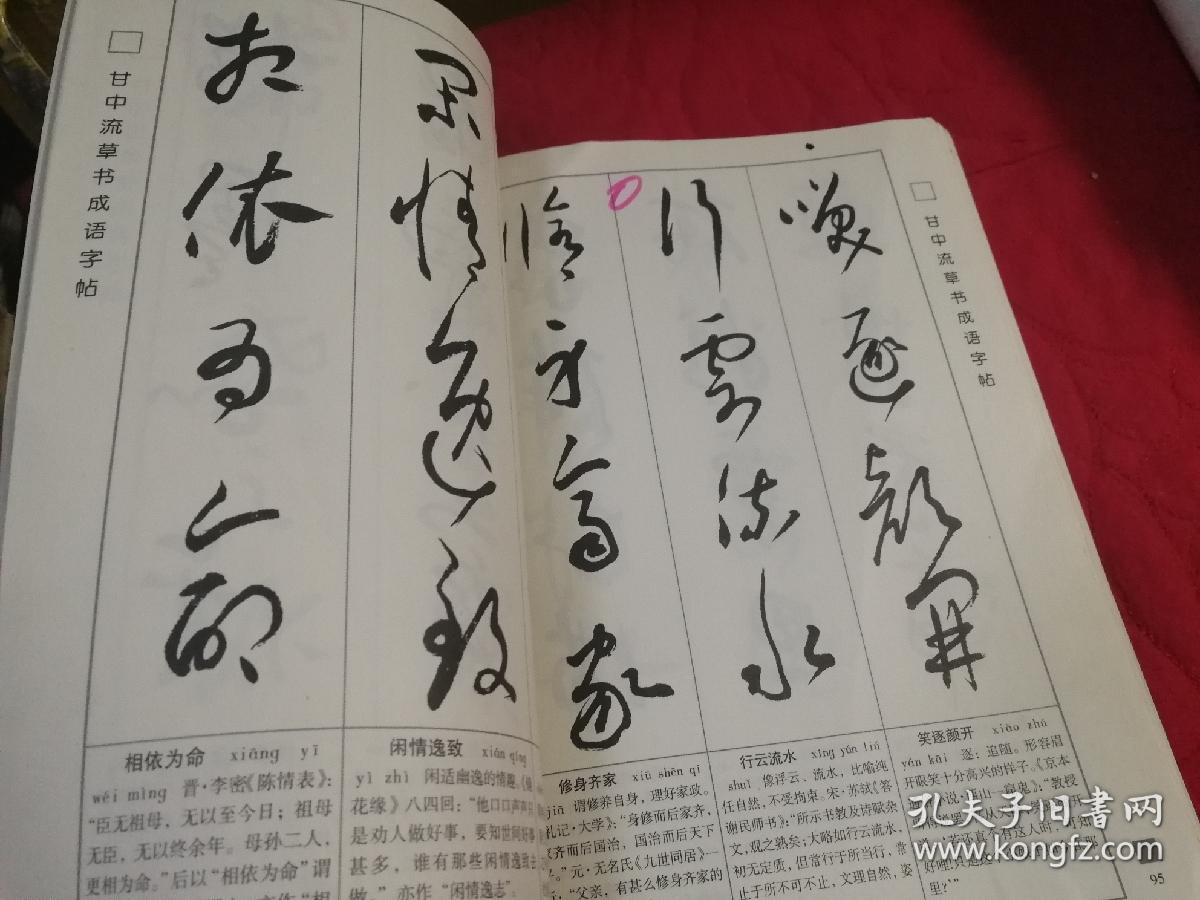 甘中流草书成语字帖
相依为命
闲情逸致
相依为命 xiāng yī
wéi mìng 晋·李密《陈情表》：
“臣无祖母，无以至今日；祖母
无臣，无以终余年。母孙二人，
更相为命。”后以“相依为命”谓
闲情逸致 xián qíng
yì zhì 闲适幽逸的情趣。《镜
花缘》八四回：“他口口声声
是劝人做好事，要知世间好事
甚多，谁有那些闲情逸致去
做。”亦作“闲情逸志”。
甘中流草书成语字帖
笑逐颜开
行云流水
修身齐家
修身齐家 xiū shēn qí
jiā 谓修养自身，理好家政。
《礼记·大学》：“身修而后家齐，
家齐而后国治，国治而后天下
平。”元·无名氏《九世同居》一
“父亲，有甚么修身齐家的
行云流水 xíng yún liú
shuǐ 像浮云、流水，比喻纯
任自然，不受拘束。宋·苏轼《答
谢民师书》：“所示书教及诗赋杂
文，观之熟矣；大略如行云流水，
初无定质，但常行于所当行，常
止于所不可不止，文理自然，姿
笑逐颜开 xiào zhú
yán kāi 逐：追随。形容眉
开眼笑十分高兴的样子。《京本
教授
里？’”
95
孔夫子旧书网
www.kongfz.com